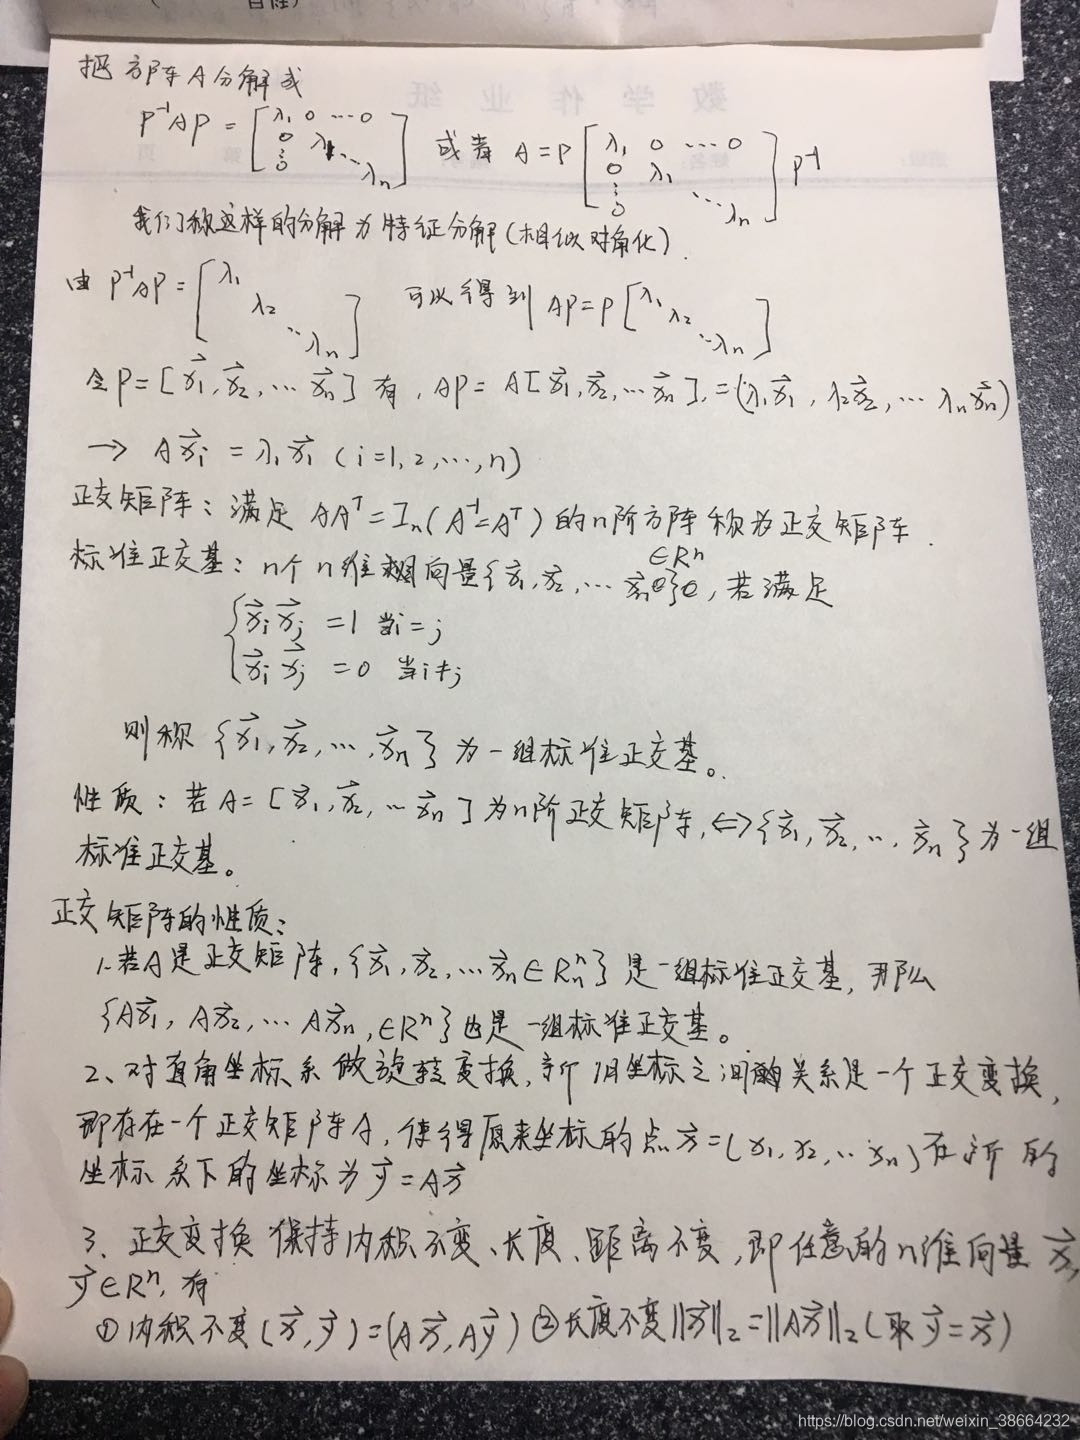 把方阵A分解成
P⁻¹AP = [λ₁ 0 … 0 0 λ₁ ⋮ ⋱ 0 λₙ] 或者 A = P [λ₁ 0 … 0 0 λ₁ ⋮ ⋱ 0 λₙ] P⁻¹
我们称这样的分解为特征分解(相似对角化).
由 P⁻¹AP = [λ₁ λ₂ ⋱ λₙ] 可以得到 AP = P [λ₁ λ₂ ⋱ λₙ]
令P = [x⃗₁, x⃗₂, … x⃗ₙ] 有, AP = A[x⃗₁, x⃗₂, … x⃗ₙ], = (λ₁x⃗₁, λ₂x⃗₂, … λₙx⃗ₙ)
→ Ax⃗ᵢ = λᵢx⃗ᵢ (i=1, 2, …, n)
正交矩阵: 满足 AAᵀ = Iₙ (A⁻¹=Aᵀ) 的n阶方阵称为正交矩阵.
标准正交基: n个n维向量{x⃗₁, x⃗₂, … x⃗ₙ} ∈Rⁿ, 若满足
x⃗ᵢ x⃗ⱼ = 1 当i=j
x⃗ᵢ x⃗ⱼ = 0 当i≠j
则称 {x⃗₁, x⃗₂, …, x⃗ₙ} 为一组标准正交基。
性质: 若A = [x⃗₁, x⃗₂, … x⃗ₙ] 为n阶正交矩阵, ⟺ {x⃗₁, x⃗₂, …, x⃗ₙ} 为一组
标准正交基。
正交矩阵的性质:
1. 若A是正交矩阵, {x⃗₁, x⃗₂, … x⃗ₙ∈Rⁿ} 是一组标准正交基, 那么
{Ax⃗₁, Ax⃗₂, … Ax⃗ₙ, ∈Rⁿ} 也是一组标准正交基。
2、对直角坐标系做旋转变换, 新旧坐标之间的关系是一个正交变换,
即存在一个正交矩阵A, 使得原来坐标的点x⃗=(x₁, x₂, … xₙ)在新的
坐标系下的坐标为y⃗=Ax⃗
3、正交变换保持内积不变、长度、距离不变, 即任意的n维向量x⃗,
y⃗∈Rⁿ, 有
①内积不变(x⃗, y⃗)=(Ax⃗, Ay⃗) ②长度不变‖x⃗‖₂=‖Ax⃗‖₂(取y⃗=x⃗)
https://blog.csdn.net/weixin_38664232